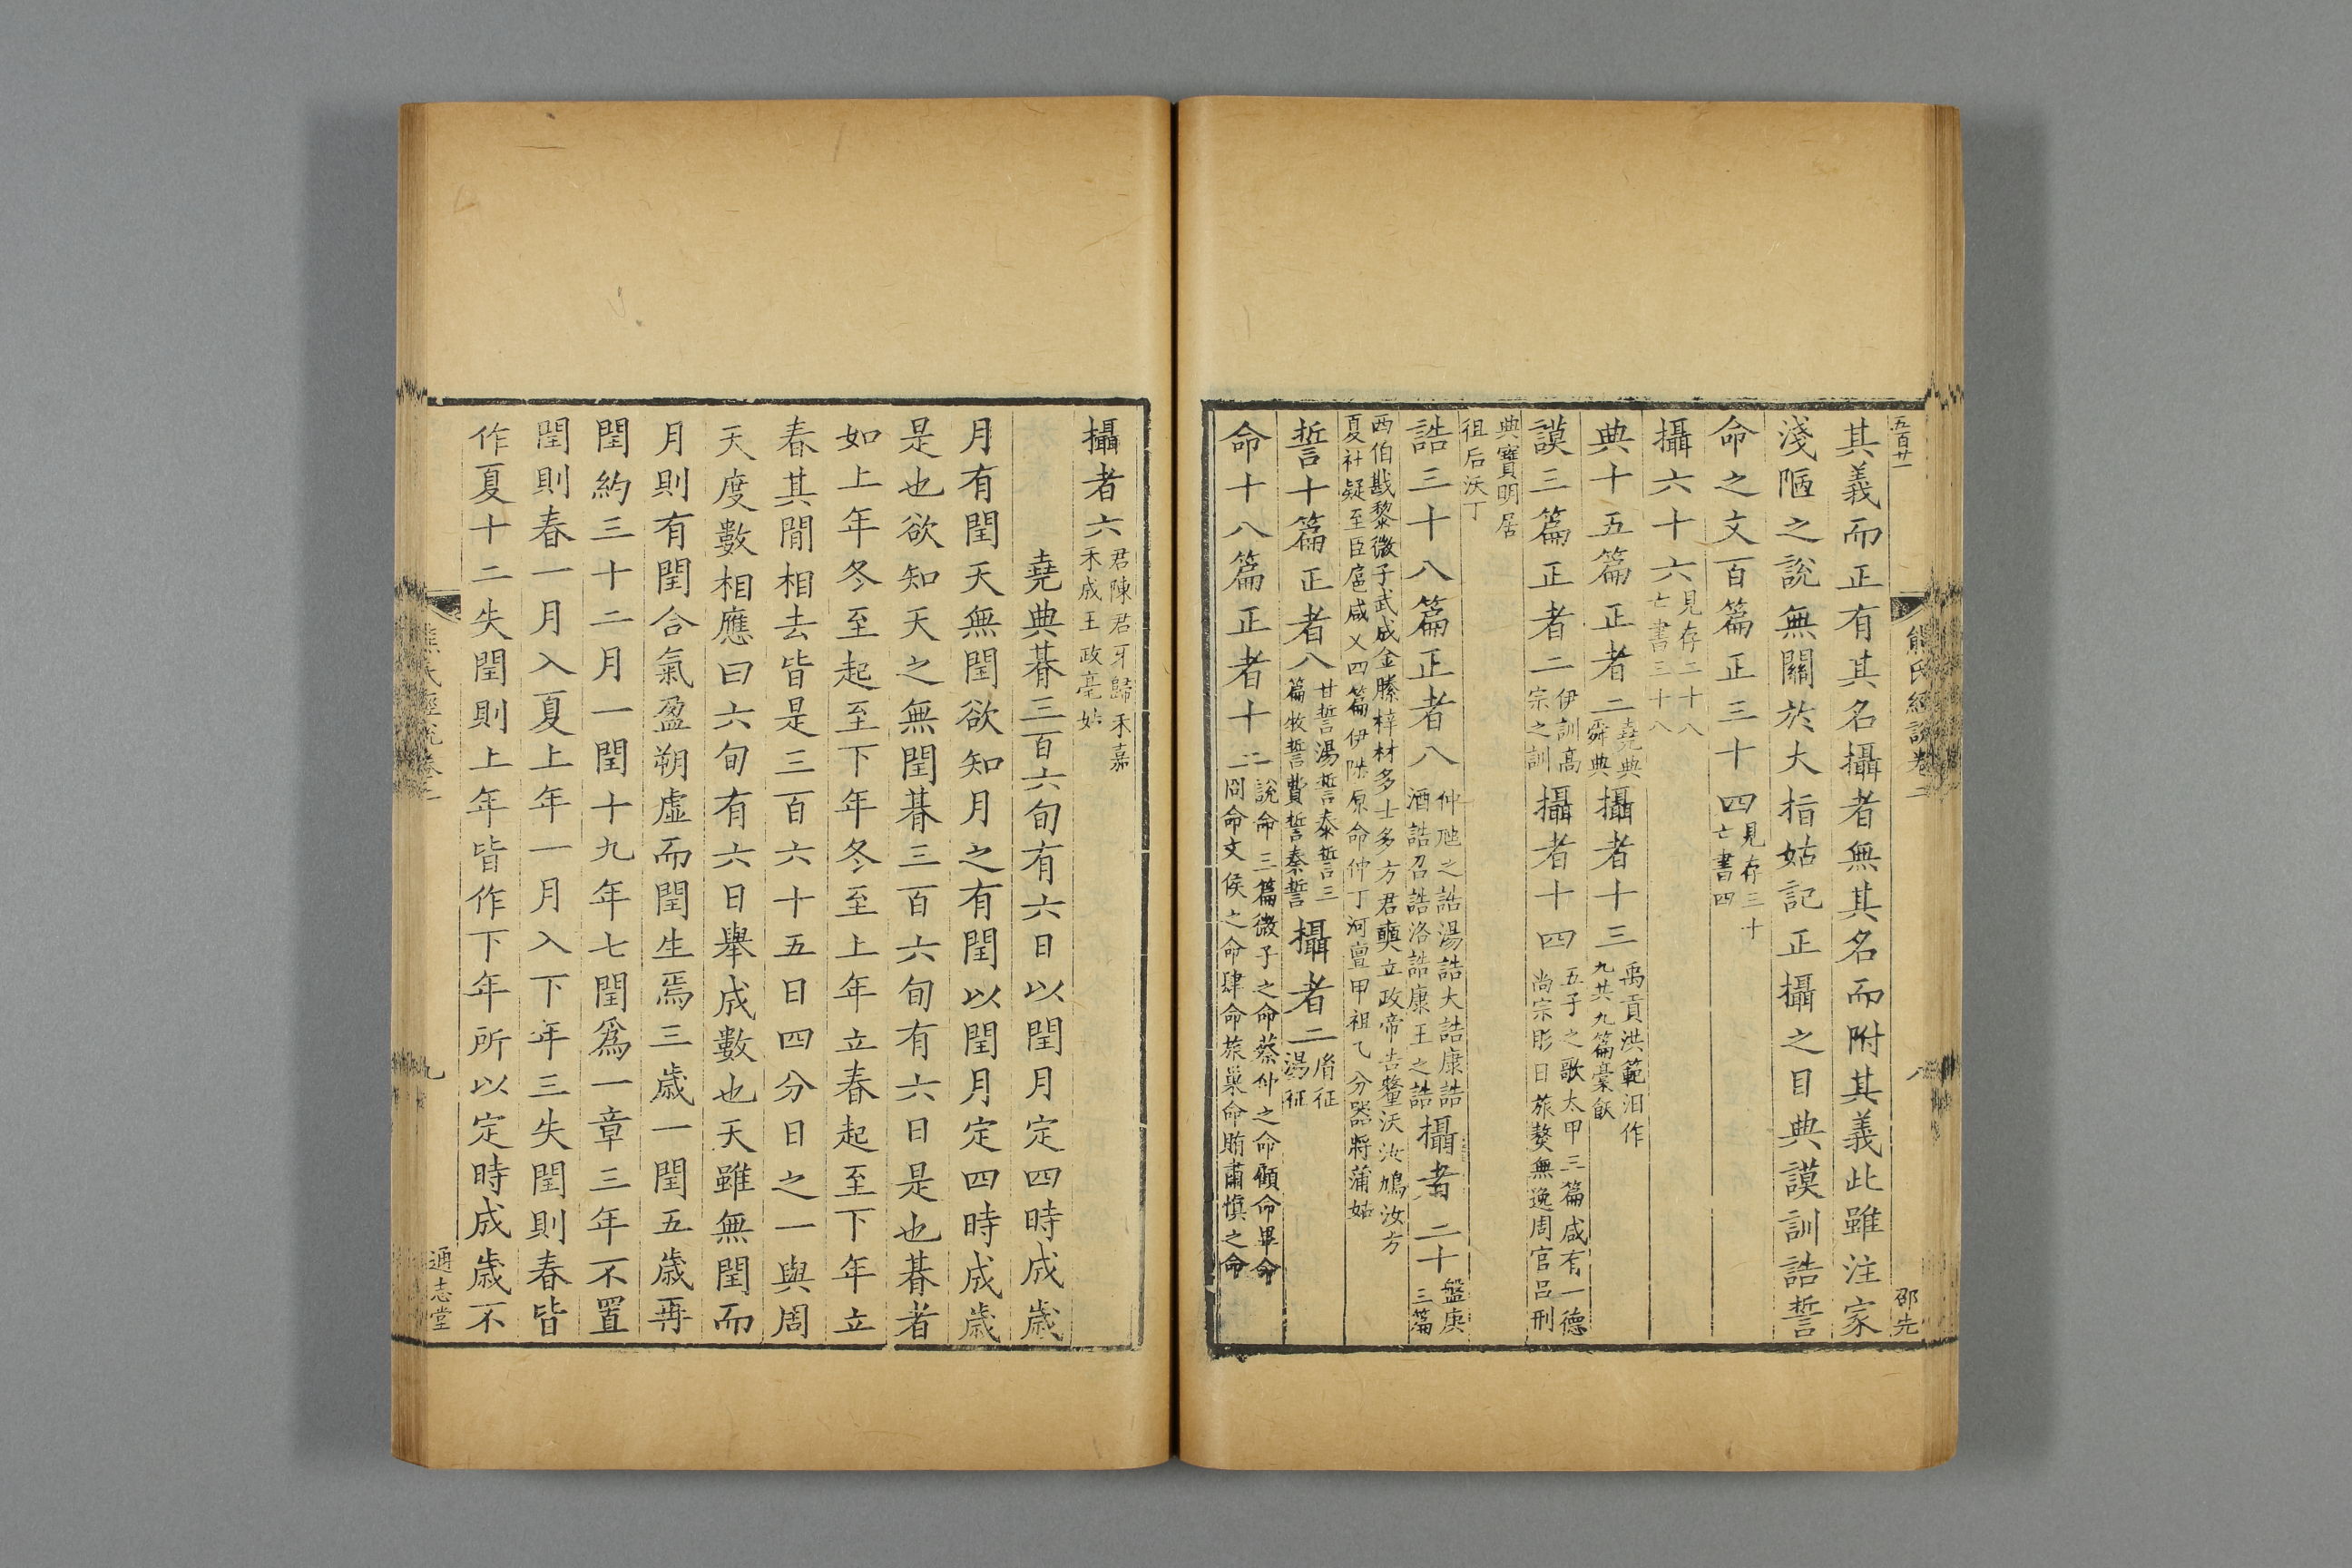 五百廿一
熊氏經說卷二
八
邵先
其義而正有其名攝者無其名而附其義此雖注家
淺陋之說無關於大指姑記正攝之目典謨訓誥誓
命之文百篇正三十四見存三十亡書四
攝六十六見存二十八亡書三十八
典十五篇正者二堯典舜典攝者十三禹貢洪範汨作九共九篇槀飫
謨三篇正者二伊訓高宗之訓攝者十四五子之歌太甲三篇咸有一德尚宗肜日旅獒無逸周官呂刑
典寶明居徂后沃丁
誥三十八篇正者八仲虺之誥湯誥大誥康誥酒誥召誥洛誥康王之誥攝者二十盤庚三篇
西伯戡黎微子武成金縢梓材多士多方君奭立政帝告釐沃汝鳩汝方夏社疑至臣扈咸乂四篇伊陟原命仲丁河亶甲祖乙分器將蒲姑
誓十篇正者八甘誓湯誓泰誓三篇牧誓費誓秦誓攝者二胤征湯征
命十八篇正者十二說命三篇微子之命蔡仲之命顧命畢命冏命文侯之命肆命旅巢命賄肅慎之命
攝者六君陳君牙歸禾嘉禾成王政亳姑
堯典朞三百六旬有六日以閏月定四時成歲
月有閏天無閏欲知月之有閏以閏月定四時成歲
是也欲知天之無閏朞三百六旬有六日是也朞者
如上年冬至起至下年冬至上年立春起至下年立
春其閒相去皆是三百六十五日四分日之一與周
天度數相應曰六旬有六日舉成數也天雖無閏而
月則有閏合氣盈朔虛而閏生焉三歲一閏五歲再
閏約三十二月一閏十九年七閏爲一章三年不置
閏則春一月入夏上年一月入下年三失閏則春皆
作夏十二失閏則上年皆作下年所以定時成歲不
熊氏經說卷二
九
通志堂